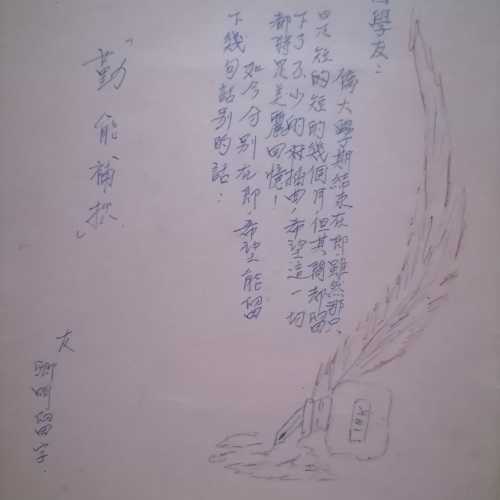 學友：
偉大學期結束在即，雖然那只
是短短的幾個月，但其間却留
下了不少的有插曲，希望這一切
都將是美麗回憶！
如今分别在即，希望能留
下幾句話别的話：
「勤能補拙」
友
留字
INK